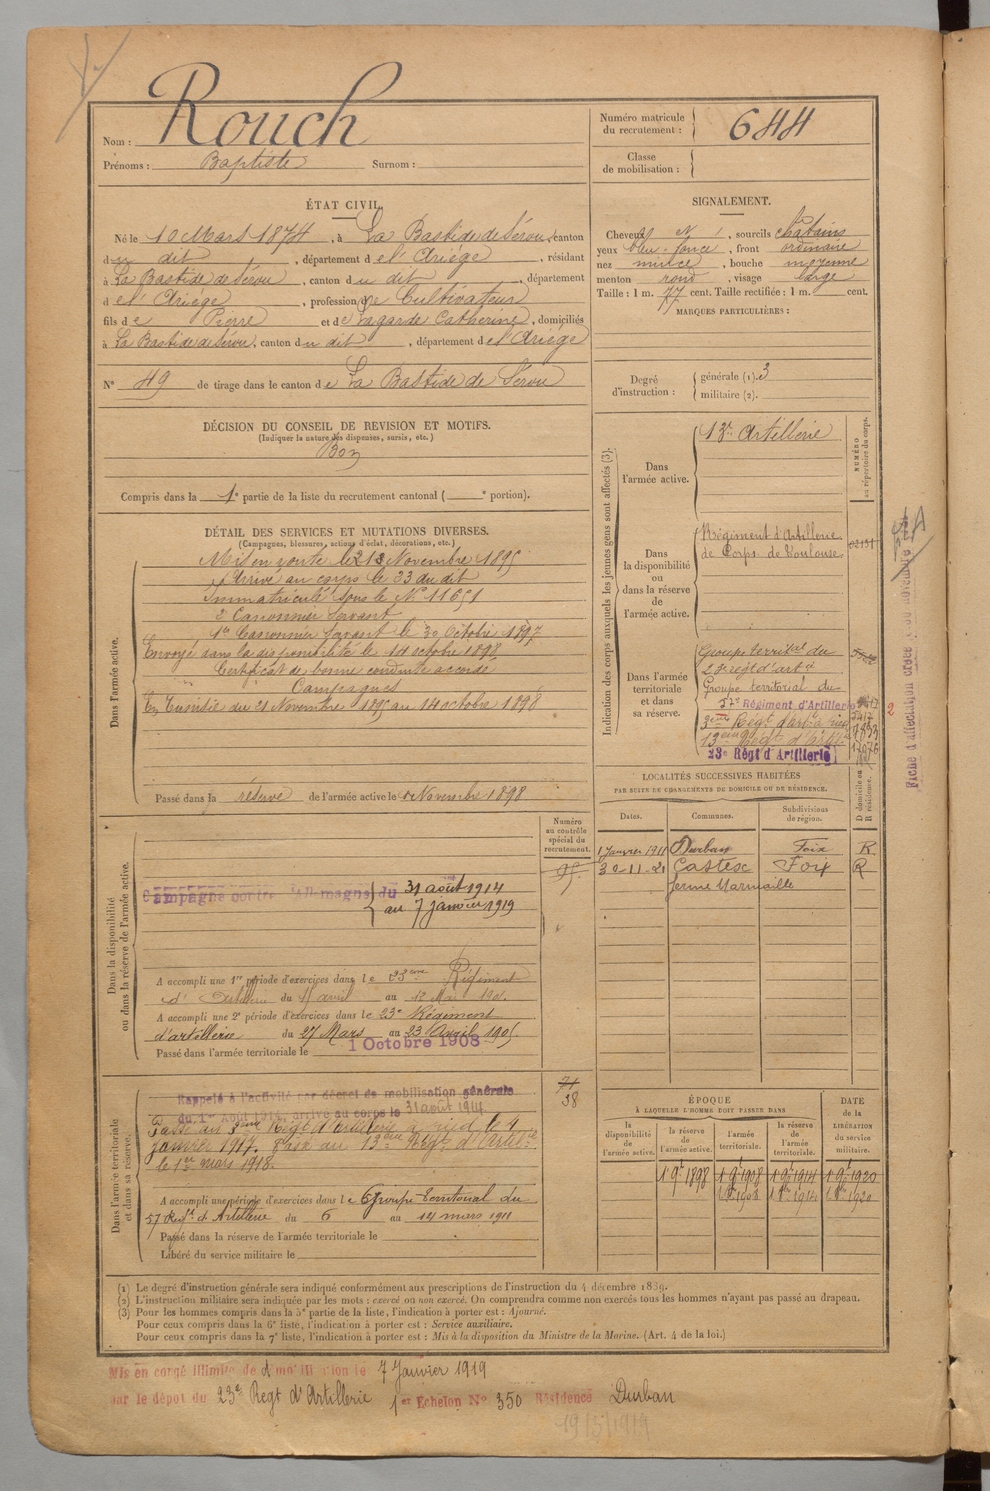 Nom : Rouch
Prénoms : Baptiste Surnom :
Numéro matricule du recrutement : 644
Classe de mobilisation :
ÉTAT CIVIL.
Né le 10 Mars 1874, à La Bastide de Sérou, canton
du dit, département de l'Ariège, résidant
à La Bastide de Sérou, canton du dit, département
de l'Ariège, profession de Cultivateur
fils de Pierre et de Lagarde Catherine, domiciliés
à La Bastide de Sérou, canton du dit, département de l'Ariège
N° 49 de tirage dans le canton de La Bastide de Sérou
SIGNALEMENT.
Cheveux N , sourcils chatains
yeux bleu-foncé, front ordinaire
nez mince, bouche moyenne
menton rond, visage large
Taille : 1 m. 77 cent. Taille rectifiée : 1 m. cent.
MARQUES PARTICULIÈRES :
Degré d'instruction : générale (1). 3
militaire (2).
DÉCISION DU CONSEIL DE REVISION ET MOTIFS.
(Indiquer la nature des dispenses, sursis, etc.)
Bon
Compris dans la 1e partie de la liste du recrutement cantonal ( e portion).
DÉTAIL DES SERVICES ET MUTATIONS DIVERSES.
(Campagnes, blessures, actions d'éclat, décorations, etc.)
Dans l'armée active.
Mis en route le 21 Novembre 1895
Arrivé au corps le 23 du dit
Immatriculé sous le N° 11651
2e Canonnier servant
1er Canonnier servant le 30 Octobre 1897
Envoyé dans la disponibilité le 14 octobre 1898
Certificat de bonne conduite accordé
Campagnes
En Tunisie du 21 Novembre 1895 au 14 octobre 1898
Passé dans la réserve de l'armée active le 1 Novembre 1898
Indication des corps auxquels les jeunes gens sont affectés (3).
NUMÉRO au répertoire du corps.
Dans l'armée active.
13e Artillerie
Dans la disponibilité ou dans la réserve de l'armée active.
Régiment d'Artillerie
de Corps de Toulouse
02131
Dans l'armée territoriale et dans sa réserve.
Groupe territal du
23e régt d'artie
Groupe territorial du
57e Régiment d'Artillerie
3eme Régt d'artie à pied
13eme Régt d'Artie
23e Régt d'Artillerie
Fiche d'affectation créée
LOCALITÉS SUCCESSIVES HABITÉES
PAR SUITE DE CHANGEMENTS DE DOMICILE OU DE RÉSIDENCE.
Dates. Communes. Subdivisions de région. D domicile ou R résidence.
1 Janvier 1911 Durban Foix R
30-11-21 Castex Foix R
ferme Marmaille
Numéro au contrôle spécial du recrutement.
95
Dans la disponibilité ou dans la réserve de l'armée active.
Campagne contre l'Allemagne du 31 août 1914
au 7 janvier 1919
A accompli une 1re période d'exercices dans le 23eme Régiment
d'Artillerie du 15 avril au 12 Mai 190
A accompli une 2e période d'exercices dans le 23e Régiment
d'artillerie du 27 Mars au 23 Avril 1905
Passé dans l'armée territoriale le 1 Octobre 1908
71
38
Dans l'armée territoriale et dans sa réserve.
Rappelé à l'activité par décret de mobilisation générale
du 1er Août 1914, arrivé au corps le 31 août 1914
Passé au 3eme Régt d'artillerie à pied le 1
janvier 1917. Passé au 13eme Régt d'Artie
le 1er mars 1918.
A accompli une période d'exercices dans le Groupe territorial du
57 Régt d'Artillerie du 6 au 14 mars 1911
Passé dans la réserve de l'armée territoriale le
Libéré du service militaire le
ÉPOQUE
À LAQUELLE L'HOMME DOIT PASSER DANS
DATE de la LIBÉRATION du service militaire.
la disponibilité de l'armée active. la réserve de l'armée active. l'armée territoriale. la réserve de l'armée territoriale.
1 9bre 1898 1 9bre 1908 1 9bre 1914 1 9bre 1920
1 8bre 1908 1 8bre 1914 1 8bre 1920
(1) Le degré d'instruction générale sera indiqué conformément aux prescriptions de l'instruction du 4 décembre 1889.
(2) L'instruction militaire sera indiquée par les mots : exercé ou non exercé. On comprendra comme non exercés tous les hommes n'ayant pas passé au drapeau.
(3) Pour les hommes compris dans la 5e partie de la liste, l'indication à porter est : Ajourné.
Pour ceux compris dans la 6e liste, l'indication à porter est : Service auxiliaire.
Pour ceux compris dans la 7e liste, l'indication à porter est : Mis à la disposition du Ministre de la Marine. (Art. 4 de la loi.)
Mis en congé illimité de démobilisation le 7 Janvier 1919
par le dépôt du 23e Régt d'Artillerie 1er Echelon N° 350 Résidence Durban